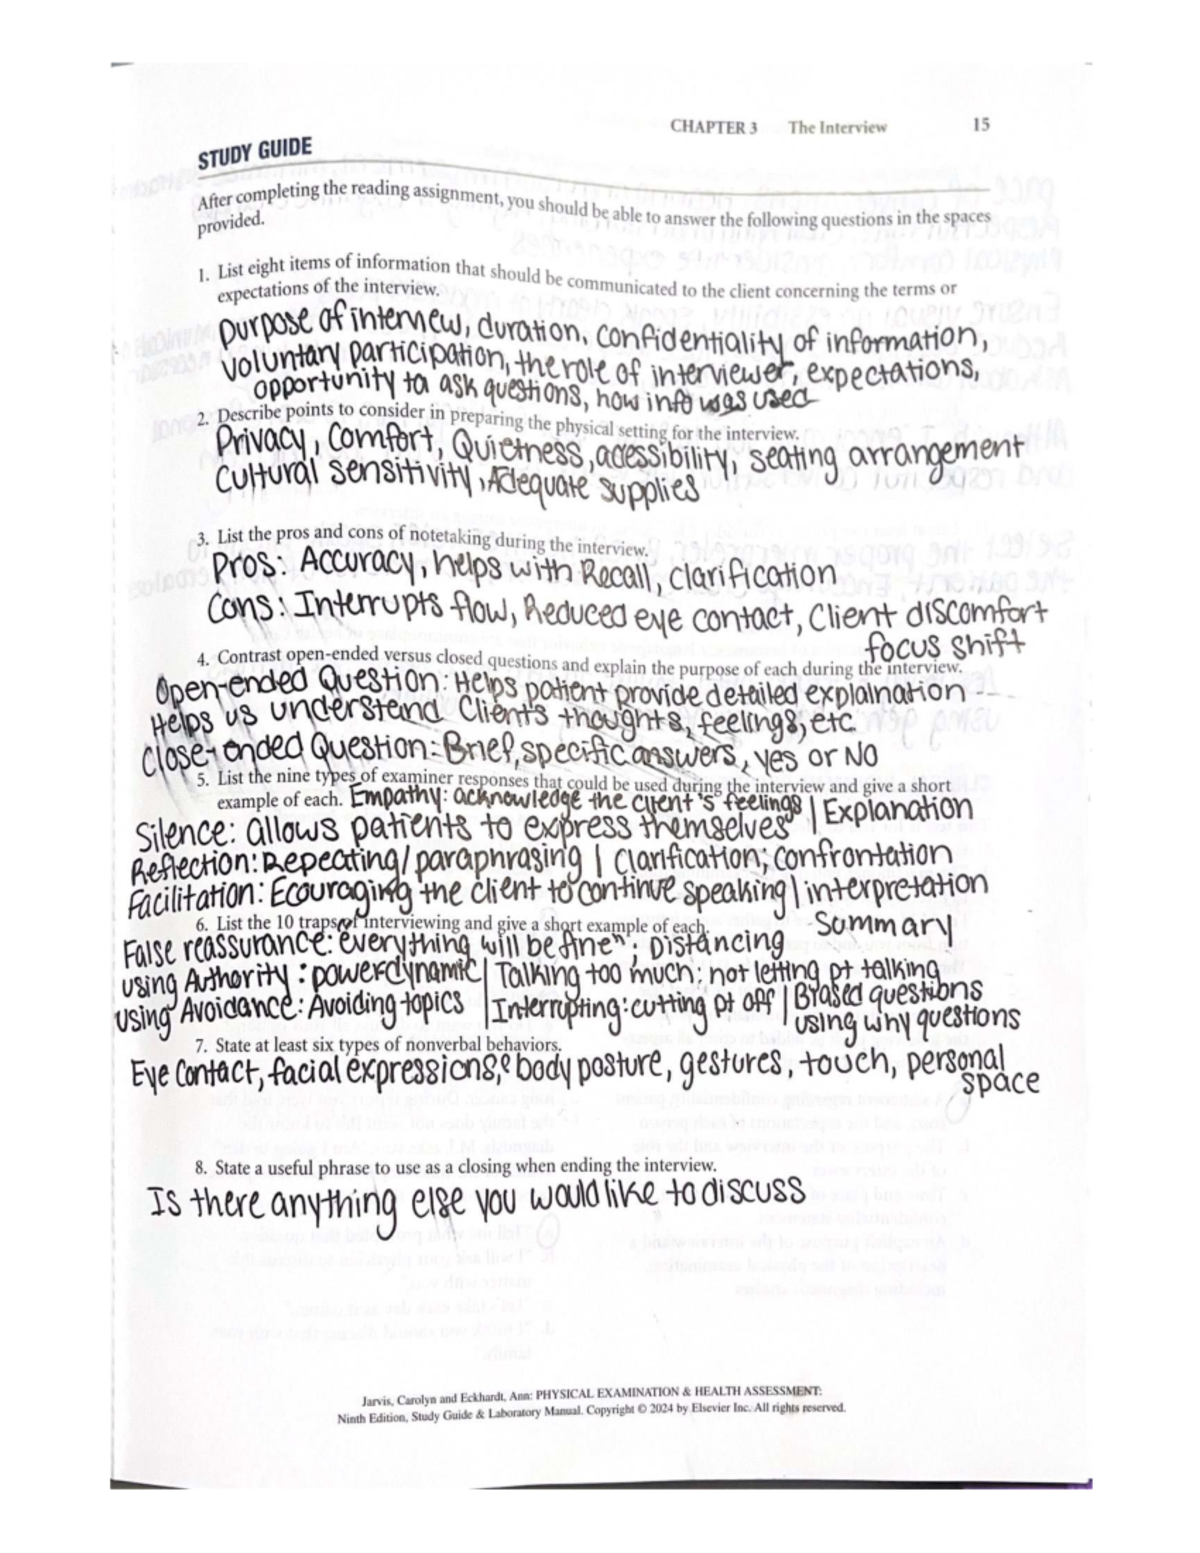 CHAPTER 3 The Interview 15
STUDY GUIDE
After completing the reading assignment, you should be able to answer the following questions in the spaces
provided.
1. List eight items of information that should be communicated to the client concerning the terms or
expectations of the interview.
Purpose of interview, duration, confidentiality of information,
Voluntary participation, the role of interviewer, expectations,
opportunity to ask questions, how info was used
2. Describe points to consider in preparing the physical setting for the interview.
Privacy, Comfort, Quietness, accessibility, seating arrangement
Cultural sensitivity, Adequate supplies
3. List the pros and cons of notetaking during the interview.
Pros: Accuracy, helps with Recall, clarification
Cons: Interrupts flow, Reduced eye contact, Client discomfort
focus shift
4. Contrast open-ended versus closed questions and explain the purpose of each during the interview.
Open-ended Question: Helps patient provide detailed explaination
Helps us understand Clients thoughts, feelings, etc.
Close-ended Question: Brief, specific answers, yes or NO
5. List the nine types of examiner responses that could be used during the interview and give a short
example of each. Empathy: acknowledge the client's feelings | Explanation
Silence: allows patients to express themselves
Reflection: Repeating/paraphrasing | Clarification; Confrontation
Facilitation: Ecouraging the client to continue speaking | interpretation
6. List the 10 traps of interviewing and give a short example of each. Sommary
False reassurance: everything will be fine"; Distancing
using Authority: powerdynamic | Talking too much: not letting pt talking
using Avoidance: Avoiding topics | Interrupting: cutting pt off | Biased questions
using why questions
7. State at least six types of nonverbal behaviors.
Eye Contact, facial expressions, body posture, gestures, touch, personal
space
8. State a useful phrase to use as a closing when ending the interview.
Is there anything else you would like to discuss
Jarvis, Carolyn and Eckhardt, Ann: PHYSICAL EXAMINATION & HEALTH ASSESSMENT:
Ninth Edition, Study Guide & Laboratory Manual. Copyright © 2024 by Elsevier Inc. All rights reserved.